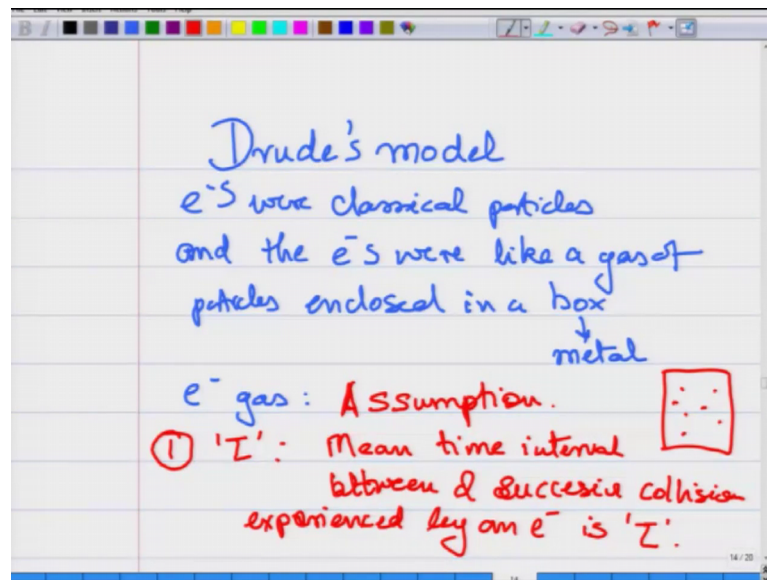 Drude's model
e⁻s were classical particles
and the e⁻s were like a gas of
particles enclosed in a box
↓
metal
e⁻ gas : Assumption.
① 'τ' : Mean time interval
between 2 succesive collision
experienced by an e⁻ is 'τ'.
14 / 20